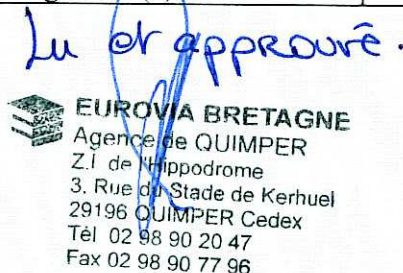 Lu et approuvé.
EUROVIA BRETAGNE
Agence de QUIMPER
Z.I de l'Hippodrome
3, Rue du Stade de Kerhuel
29196 QUIMPER Cedex
Tél 02 98 90 20 47
Fax 02 98 90 77 96